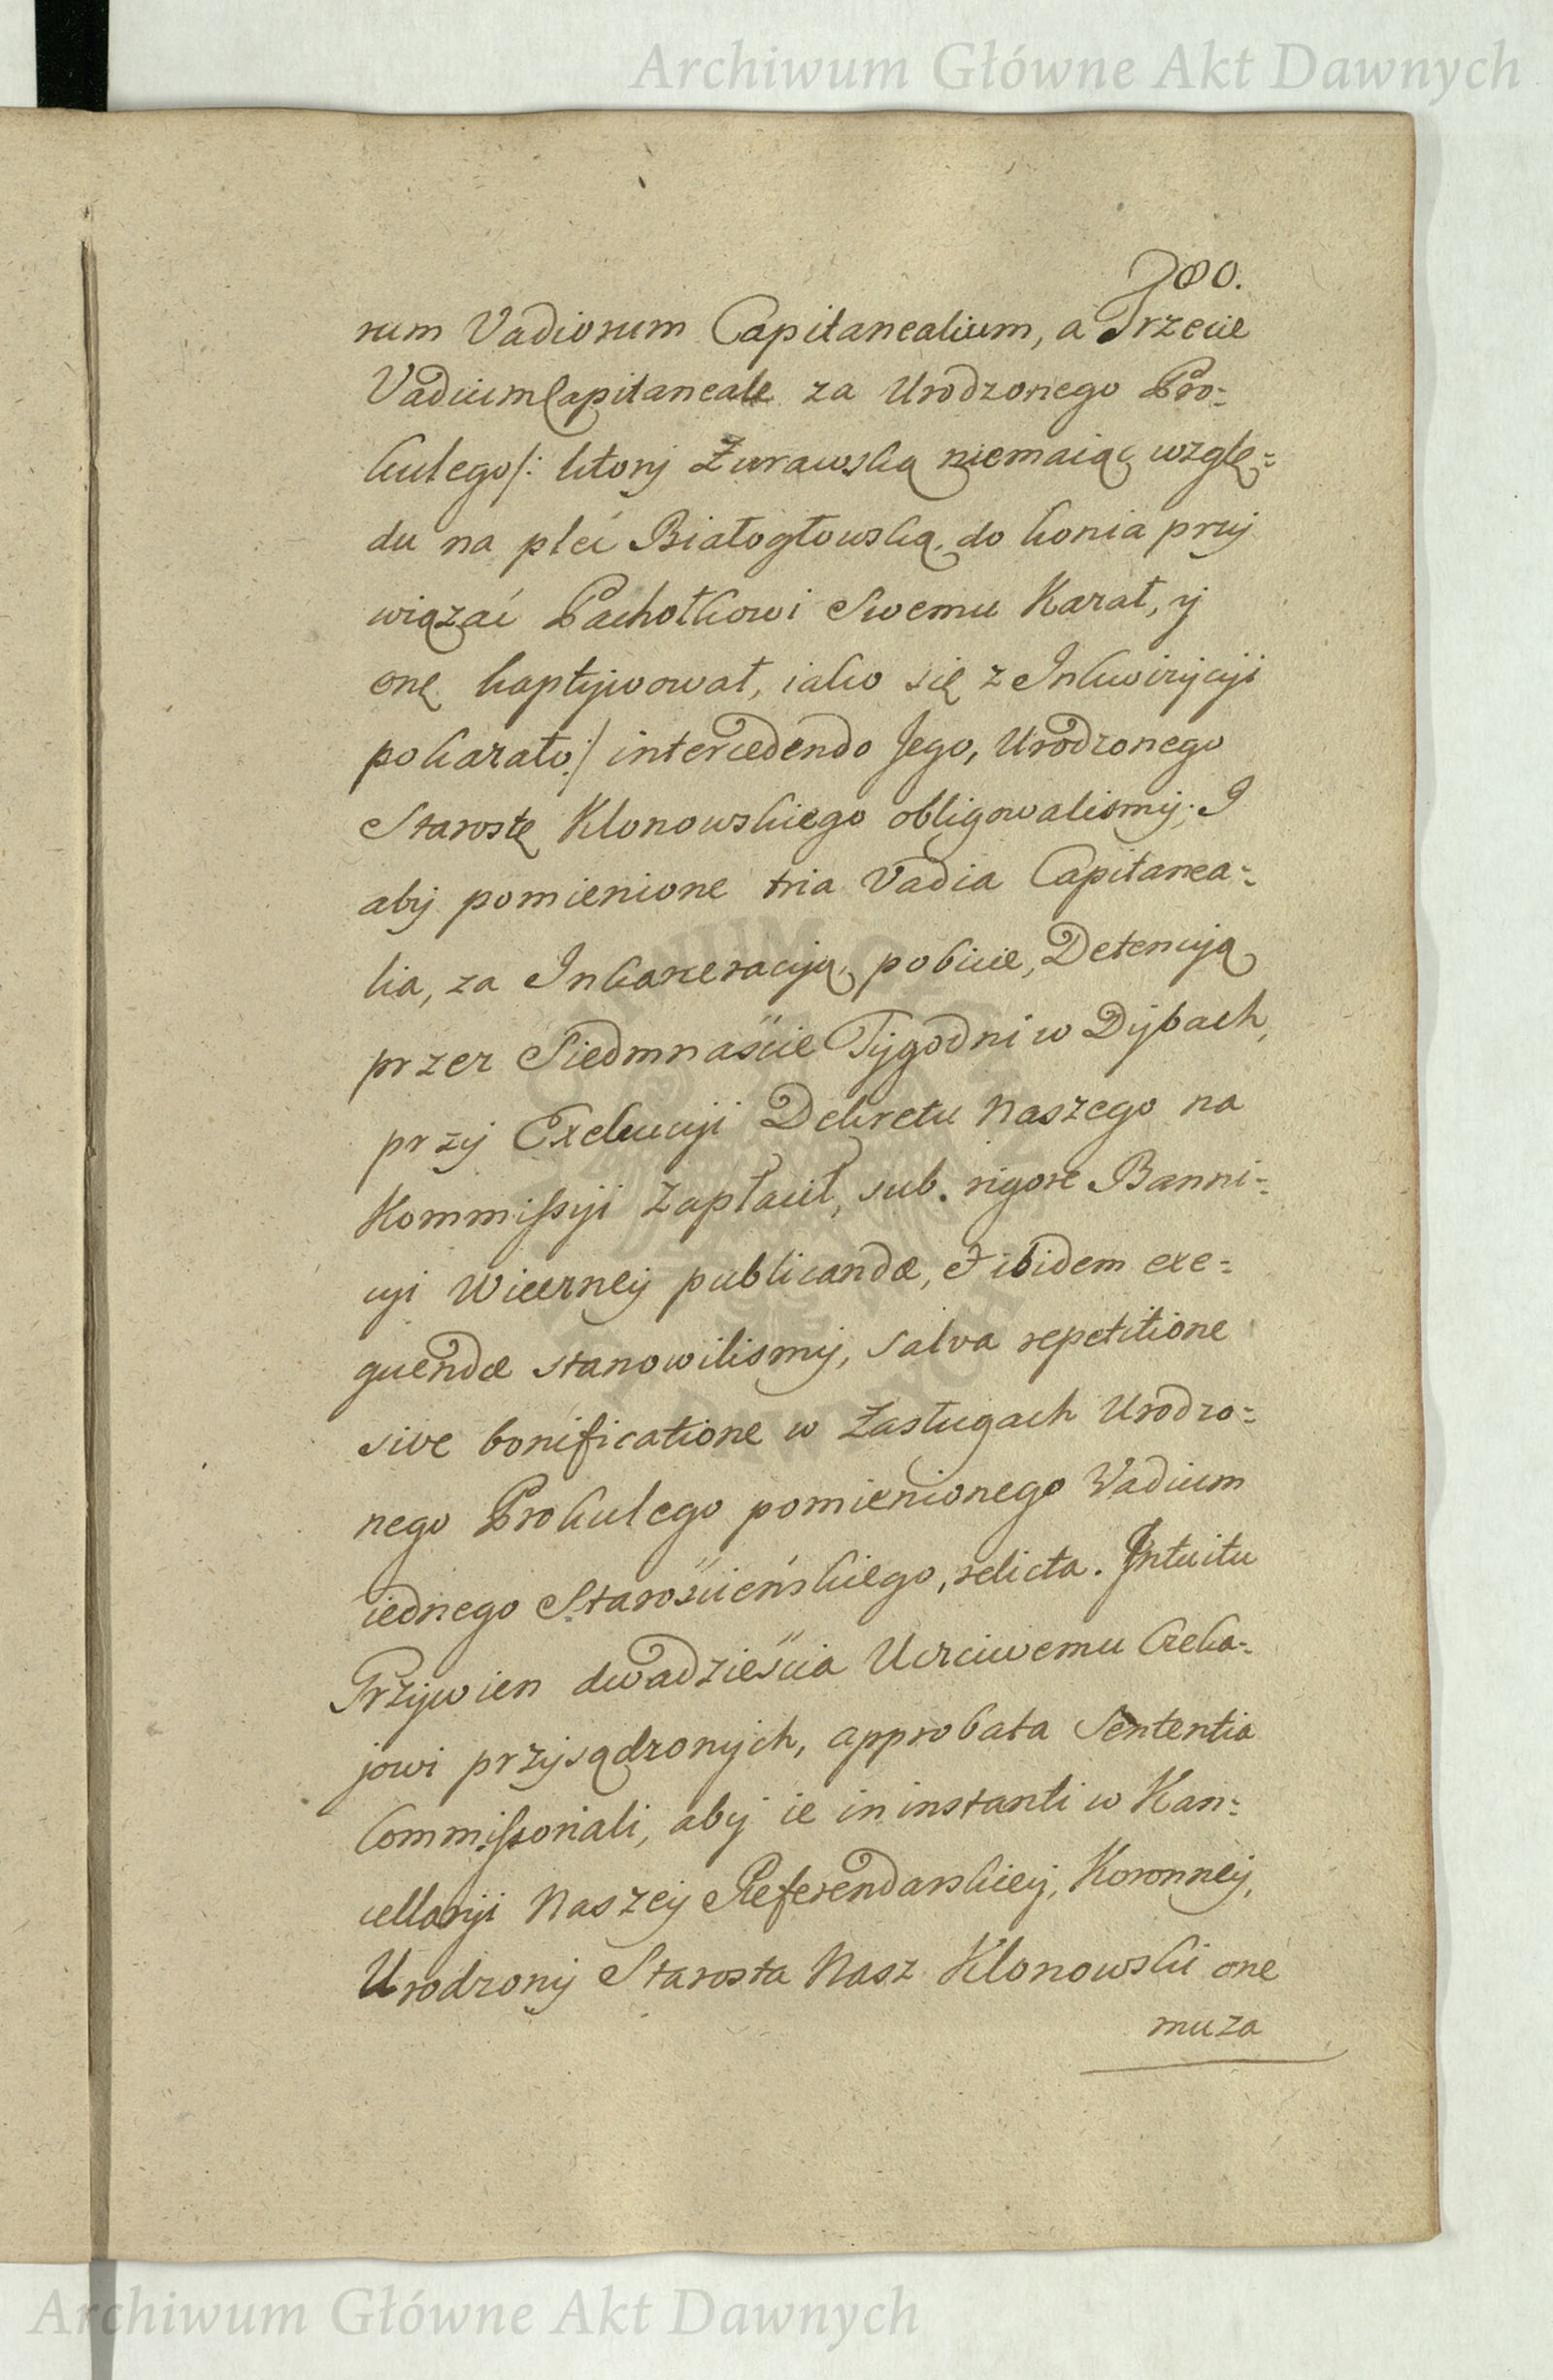 Archiwum Główne Akt Dawnych
780.
rum Vadiorum Capitanealium, a Trzecie
Vadium Capitaneale za Urodzonego Pro=
kulego/: ktory Żurawską niemaiąc wzglę=
du na płeć Białogłowską, do konia przy
wiązać Pachołkowi Swemu Kazał, y
onę kaptywował, iako się z Inkwizycyi
pokazało:/ intercedendo Jego, Urodzonego
Starostę Klonowskiego obligowalismy; I
aby pomienione tria Vadia Capitanea=
lia, za Inkarceracyą, pobicie, Detencyą
przez Siedmnaście Tygodni w Dybach,
przy Exekucyi Dekretu Naszego na
Kommissyi zapłacił, sub rigore Banni=
cyi Wieczney publicandæ, et ibidem exe=
quendæ stanowilismy, salva repetitione
sive bonificatione w Zasługach Urodzo=
nego Prokulego pomienionego Wadium
iednego Starościeńskiego, relicta. Intuitu
Grzywien dwadzieścia Uczciwemu Czeka=
jowi przysądzonych, approbata Sententia
Commissoriali, aby ie in instanti w Kan=
cellaryi Naszey Referendarskiey, Koronney,
Urodzony Starosta Nasz Klonowski one
muza
Archiwum Główne Akt Dawnych